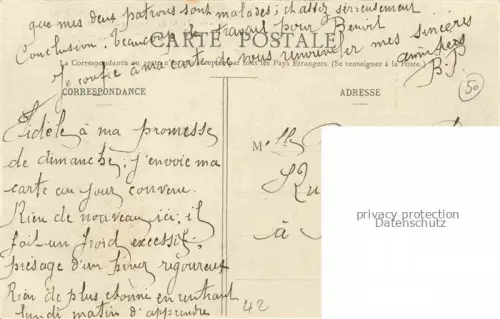 que mes deux patrons sont malades; chassez sérieusement
Conclusion: beaucoup de travail pour Benoit
CARTE POSTALE
Je confie à ma carte de vous mes sincères
La Correspondance au par tous les Pays Etrangers. (Se renseigner à la Poste.)
B. P.
50
CORRESPONDANCE
ADRESSE
Fidèle à ma promesse
de dimanche; j'envoie ma
carte au jour convenu.
Rien de nouveau ici; il
fait un froid excessif,
présage d'un hiver rigoureux
Rien de plus étonné en rentrant
lundi matin d'apprendre
Melle
Ru
à
privacy protection
Datenschutz
42